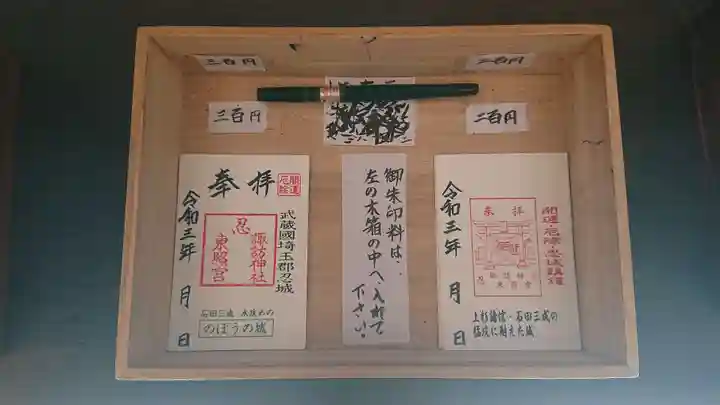 三百円
二百円
三百円
二百円
奉拝
開運
厄除
武蔵國埼玉郡忍城
忍
諏訪神社
東照宮
令和三年 月 日
石田三成 水攻めの
のぼうの城
御朱印料は、
左の木箱の中へ、入れて
下さい!
奉拝
開運・厄除・忍城鎮座
忍
諏訪神社
東照宮
令和三年 月 日
上杉謙信・石田三成の
猛攻に耐えた城